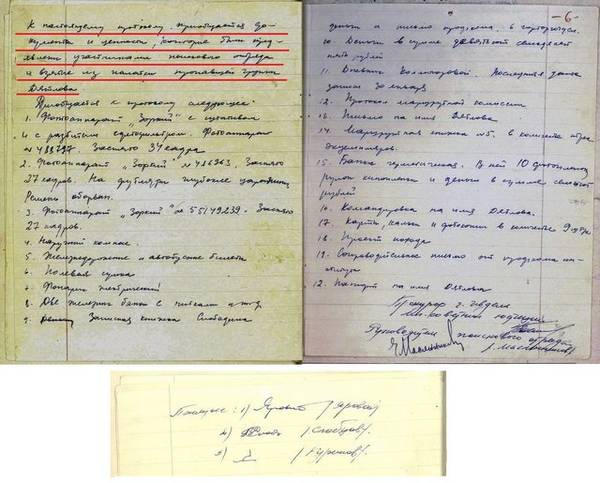 К настоящему протоколу приобщается до-
кументы и ценности, которые были пред-
явлены участниками поискового отряда
и взятые из палатки пропавшей группы
Дятлова
Приобщается к протоколу следующее:
1. Фотоаппарат "Зоркий" с штативом
и с разбитым светофильтром. Фотоаппарат
№ 488797. Заснято 34 кадра
2. Фотоаппарат "Зоркий" № 486963. Заснято
27 кадров. На футляре глубокие царапины,
Ремень оборван.
3. Фотоаппарат "Зоркий" № 55149239. Заснято
27 кадров.
4. Наручный компас.
5. Железнодорожные и автобусные билеты
6. Полевая сумка
7. Фонарик электрический
8. Две железных банки с нитками и т.д.
9. Записная книжка Слободина
-6-
деньги и письмо профкома, в горком
10. Деньги в сумме девятьсот семьдесят
пять рублей
11. Дневник Колмогоровой. Последняя дата
записи 30 января
12. Протокол маршрутной комиссии
13. Письмо на имя Дятлова.
14. Маршрутная книжка №5. в количестве трех
экземпляров.
15. Банка герметическая. В ней 10 фотопленок
рулон кинопленки и деньги в сумме семьсот
рублей
16. Командировка на имя Дятлова.
17. Карты, кальки и фотокопии в количестве 9 штук
18. Проект похода
19. Сопроводительное письмо от профкома ин-
ститута
12. Паспорт на имя Дятлова
Прокурор г. Ивделя
мл. советник юстиции
Руководитель поискового отряда
/Масленников/
Понятые: 1) /Яровой/
2) /Слобцов/
3)